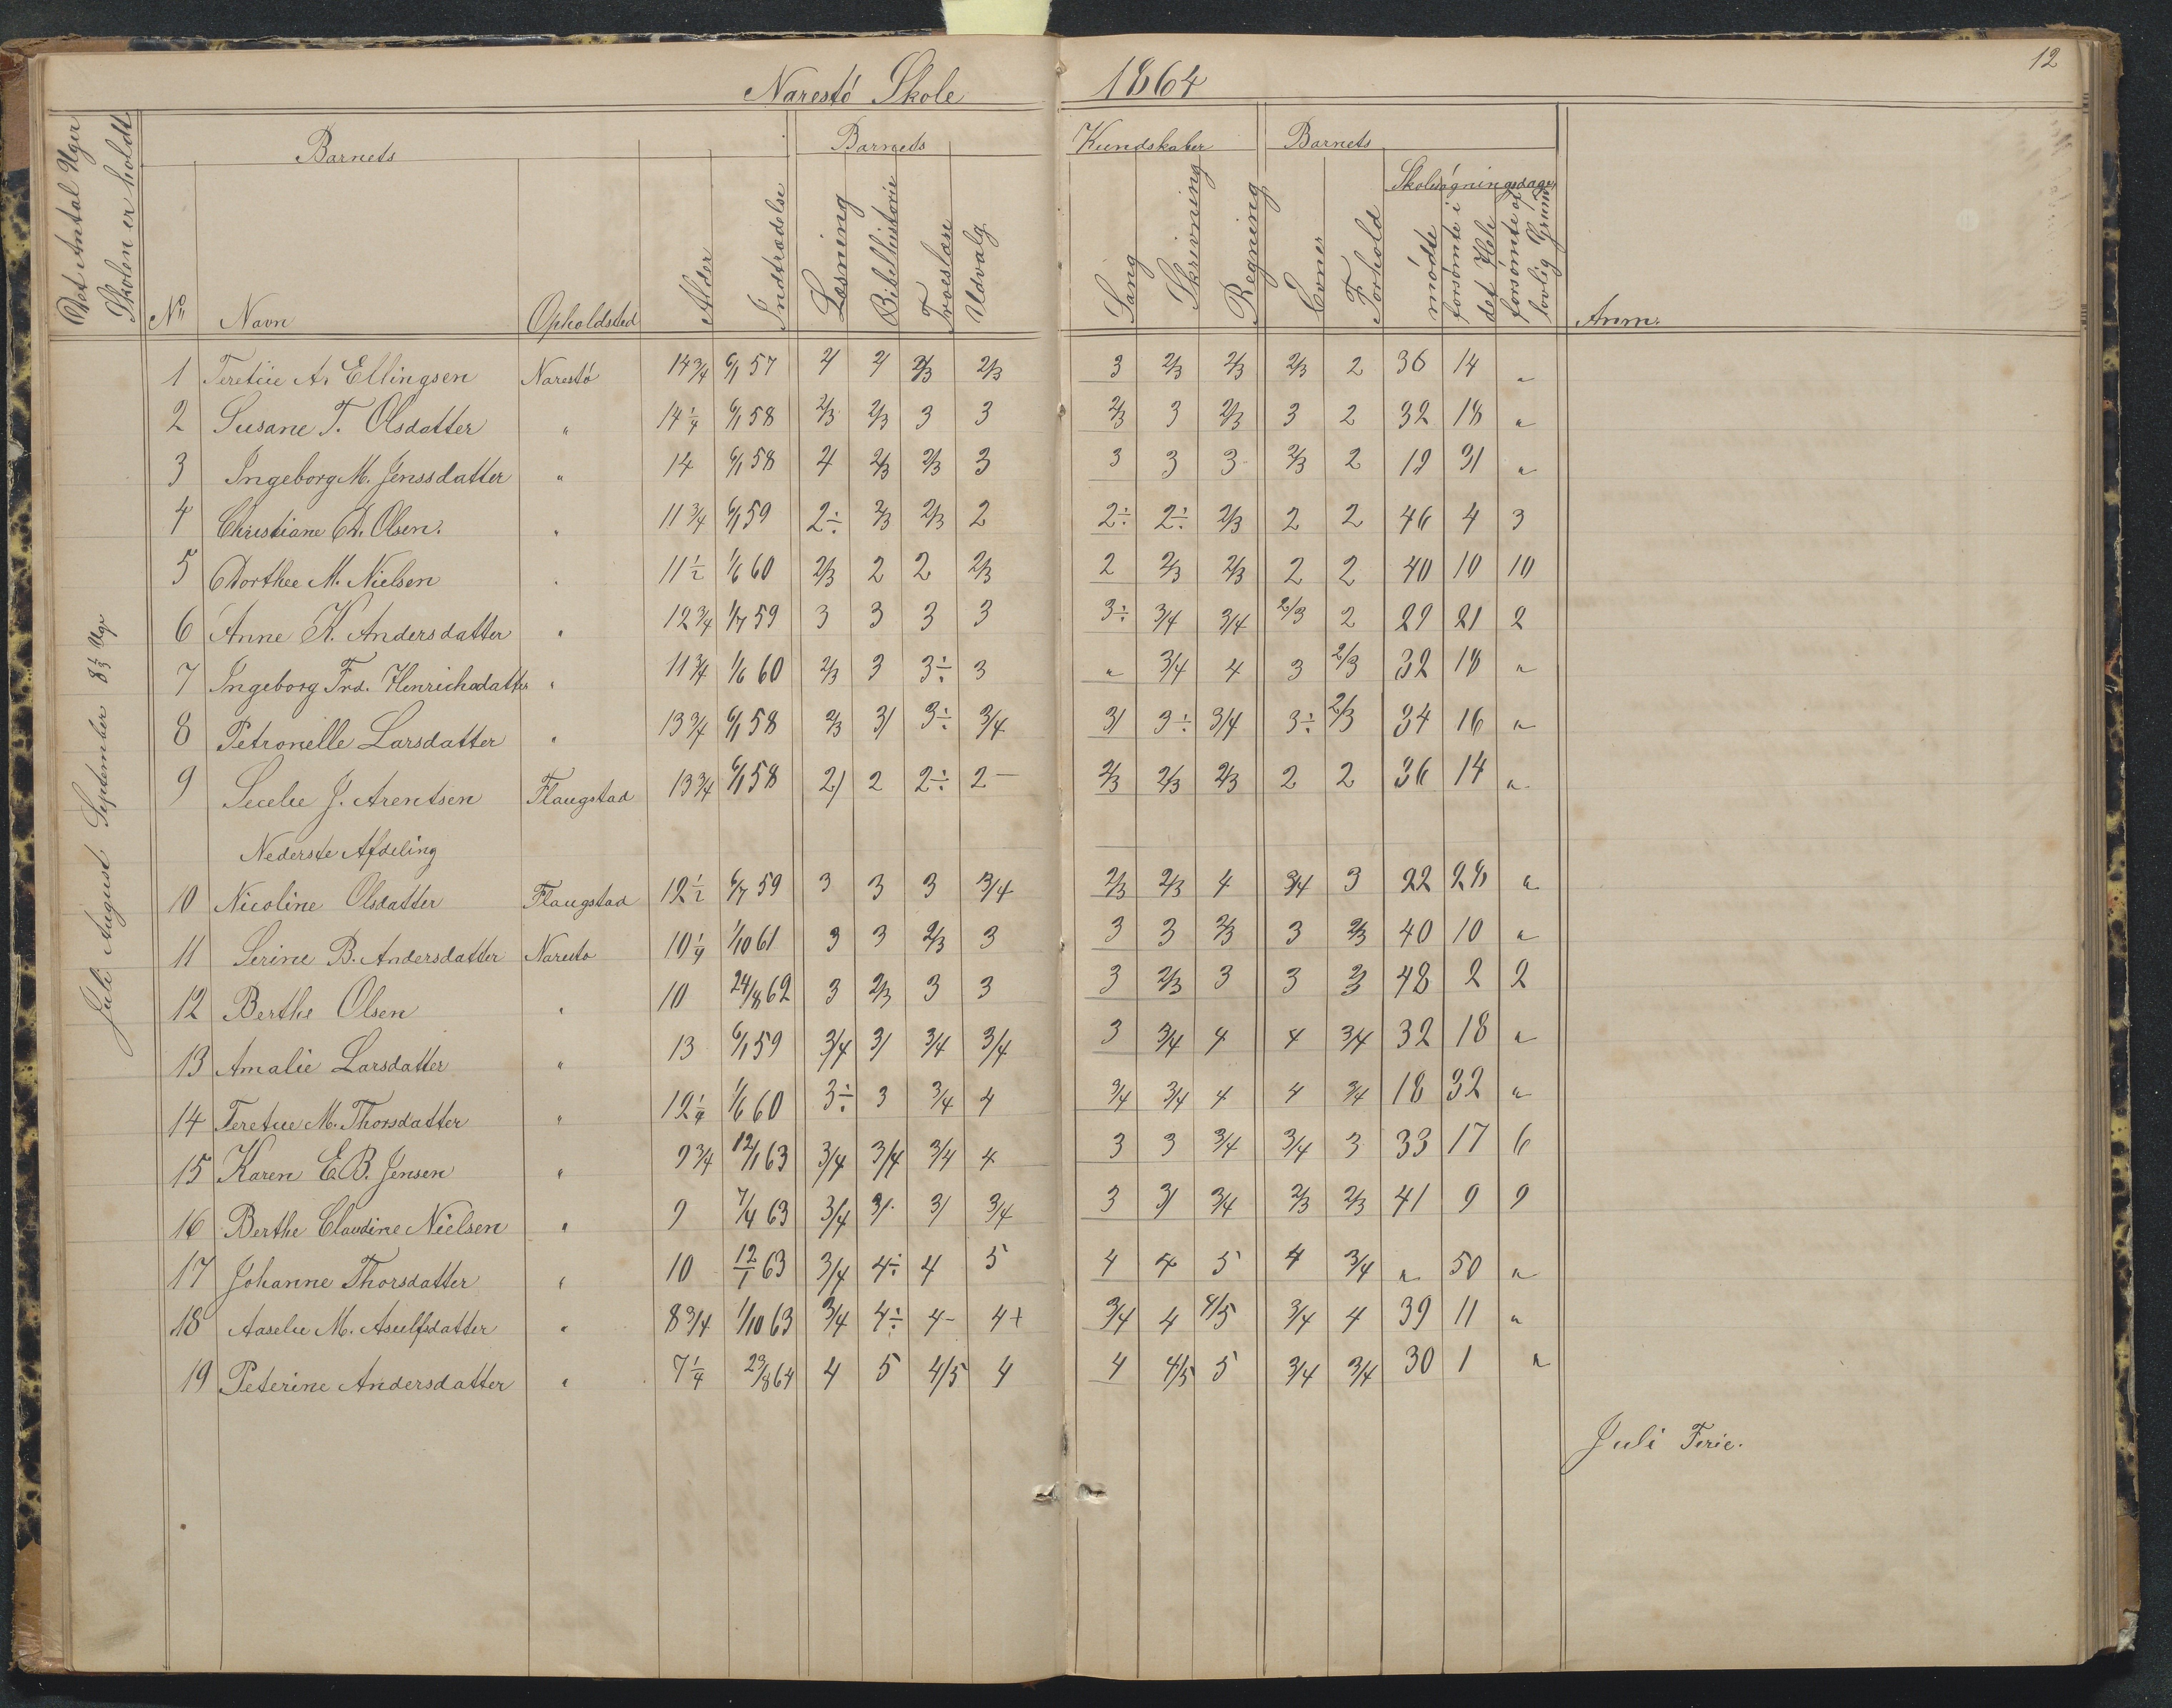 12
Narestö Skole 1864
Det Antal Uger Skolen er holdt
Barnets
Barnets Kundskaber
Barnets
Skolesøgningsdage
No Navn Opholdsted Alder Indtrædelse Læsning Bibelhistorie Troeslære Udvalg Sang Skrivning Regning Evner Forhold mødte forsømte i det Hele forsømte af lovlig Grund Anm:
Juli August September 8 1/3 Uge
1 Teretine A. Ellingsen Narestö 14 3/4 6/1 57 2/ 2/ 2/3 2/3 3 2/3 2/3 2/3 2 36 14 "
2 Susane T. Olsdatter " 14 1/4 6/1 58 2/3 2/3 3 3 2/3 3 2/3 3 2 32 18 "
3 Ingeborg M. Jenssdatter " 14 6/1 58 2/ 2/3 2/3 3 3 3 3 2/3 2 19 31 "
4 Christiane Olsen. " 11 3/4 6/1 59 2÷ 2/3 2/3 2 2÷ 2÷ 2/3 2 2 46 4 3
5 Dorthee M. Nielsen " 11 1/2 1/6 60 2/3 2 2 2/3 2 2/3 2/3 2 2 40 10 10
6 Anne K. Andersdatter " 12 3/4 1/7 59 3 3 3 3 3÷ 3/4 3/4 2/3 2 29 21 2
7 Ingeborg Frd. Henrichsdatter " 11 3/4 1/6 60 2/3 3 3÷ 3 " 3/4 4 3 2/3 32 18 "
8 Petronelle Larsdatter " 13 3/4 6/1 58 2/3 3/ 3÷ 3/4 3/ 3÷ 3/4 3÷ 2/3 34 16 "
9 Secelie J. Arentsen Flaugstad 13 3/4 6/1 58 2/ 2 2÷ 2- 2/3 2/3 2/3 2 2 36 14 "
Nederste Afdeling
10 Nicoline Olsdatter Flaugstad 12 1/2 6/7 59 3 3 3 3/4 2/3 2/3 4 3/4 3 22 28 "
11 Serine B. Andersdatter Naresto 10 1/4 1/10 61 3 3 2/3 3 3 3 2/3 3 2/3 40 10 "
12 Berthe Olsen " 10 24/8 62 3 2/3 3 3 3 2/3 3 3 2/3 48 2 2
13 Amalie Larsdatter " 13 6/1 59 3/4 3/ 3/4 3/4 3 3/4 4 4 3/4 32 18 "
14 Teretine M. Thorsdatter " 12 1/4 1/6 60 3÷ 3 3/4 4 3/4 3/4 4 4 3/4 18 32 "
15 Karen E.B. Jensen " 9 3/4 12/1 63 3/4 3/4 3/4 4 3 3 3/4 3/4 3 33 17 6
16 Berthe Claudine Nielsen " 9 7/4 63 3/4 3/ 3/ 3/4 3 3/ 3/4 2/3 2/3 41 9 9
17 Johanne Thorsdatter " 10 12/1 63 3/4 4÷ 4 5 4 4 5 4 3/4 " 50 "
18 Aaselie M. Asulfsdatter " 8 3/4 1/10 63 3/4 4÷ 4- 4+ 3/4 4 4/5 3/4 4 39 11 "
19 Peterine Andersdatter " 7 1/4 29/8 64 4 5 4/5 4 4 4/5 5 3/4 3/4 30 1 "
Juli Ferie.